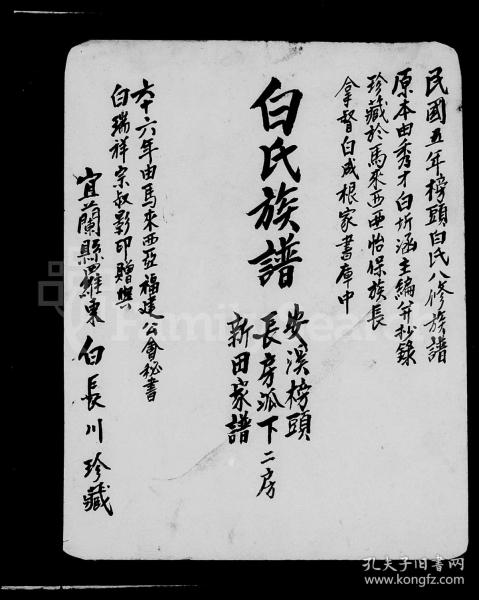 民國五年榜頭白氏八修族譜
原本由秀才白圻涵主編并抄錄
珍藏於馬來西亜怡保族長
拿督白成根家書庫中
白氏族譜
安溪榜頭
長房派下二房
新田家譜
六十六年由馬來西亞福建公會秘書
白瑞祥宗叔影印贈與
宜蘭縣羅東白長川珍藏
FamilySearch
孔夫子旧书网
www.kongfz.com